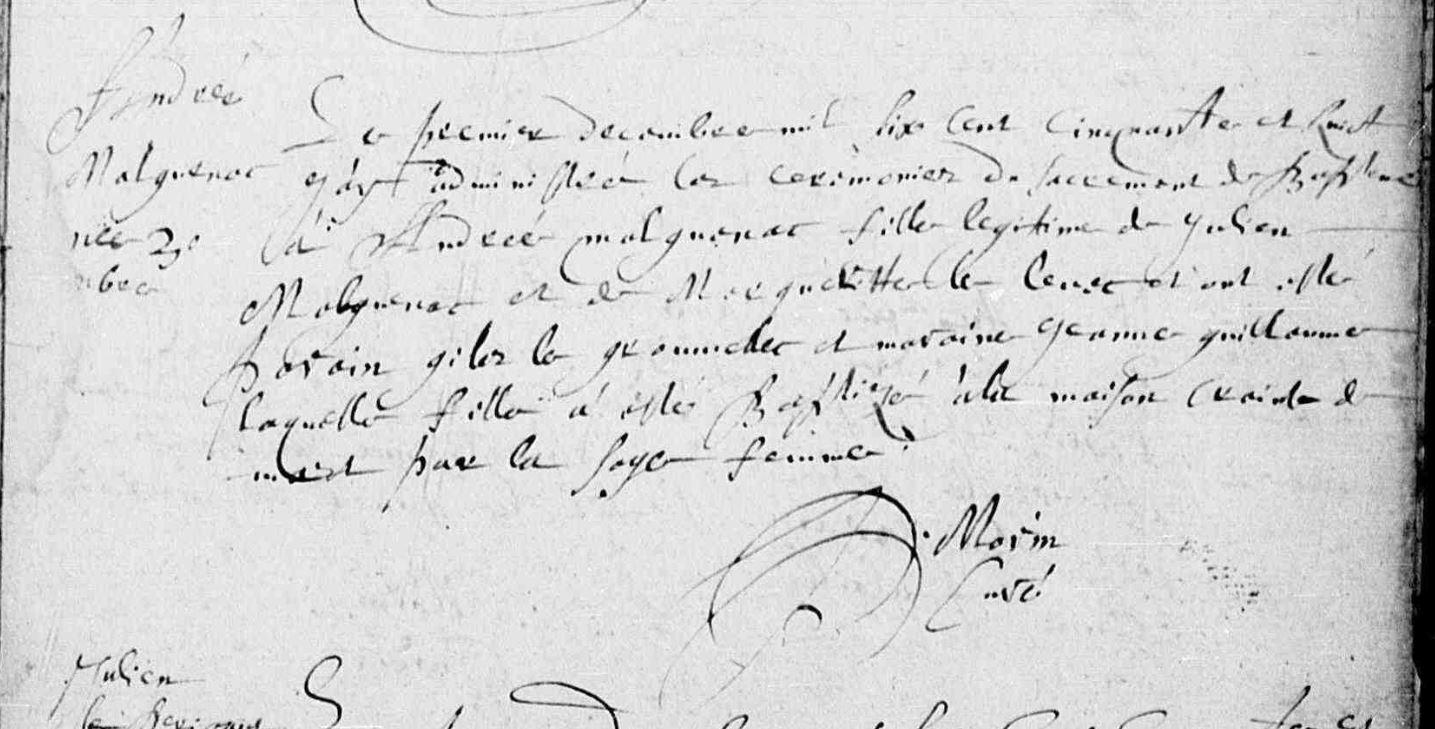 Andréé
Malguenac
née 30
nbre
Le premier decembre mil six cent cinquante et huict
j'ay administré les cerémonies du sacrement de Bapteme
à Andréé malguenac fille legitime de Julien
Malguenac et de Margueritte le et ont esté
parain giles le et maraine Jeanne guillaume
laquelle fille a esté Baptizéé à la maison crainte de
mort par la sage femme
Morin
Curé
Julien